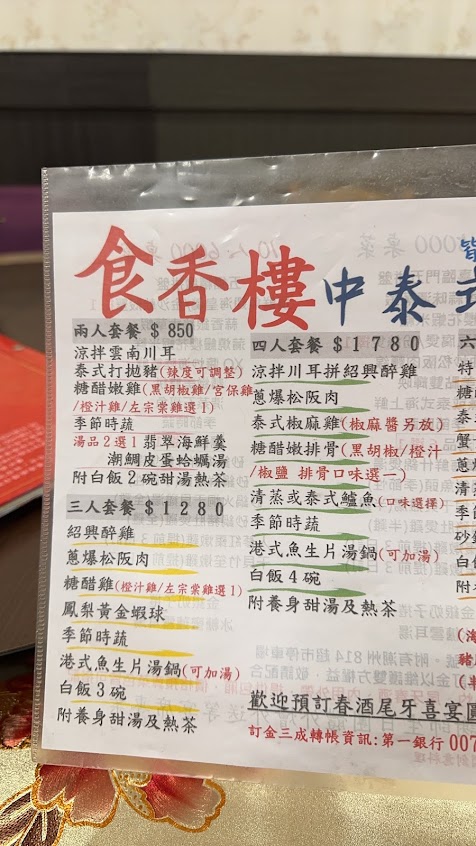 食香樓中泰
兩人套餐 $850
涼拌雲南川耳
泰式打拋豬(辣度可調整)
糖醋嫩雞(黑胡椒雞/宮保雞
/橙汁雞/左宗棠雞選1)
季節時蔬
湯品2選1 翡翠海鮮羹
潮鯛皮蛋蛤蠣湯
附白飯2碗甜湯熱茶
三人套餐 $1280
紹興醉雞
蔥爆松阪肉
糖醋雞(橙汁雞/左宗棠雞選1)
鳳梨黃金蝦球
季節時蔬
港式魚生片湯鍋(可加湯)
白飯3碗
附養身甜湯及熱茶
四人套餐 $1780
涼拌川耳拼紹興醉雞
蔥爆松阪肉
泰式椒麻雞(椒麻醬另放)
糖醋嫩排骨(黑胡椒/橙汁
/椒鹽 排骨口味選一)
清蒸或泰式鱸魚(口味選擇)
季節時蔬
港式魚生片湯鍋(可加湯)
白飯4碗
附養身甜湯及熱茶
歡迎預訂春酒尾牙喜宴
訂金三成轉帳資訊:第一銀行 007